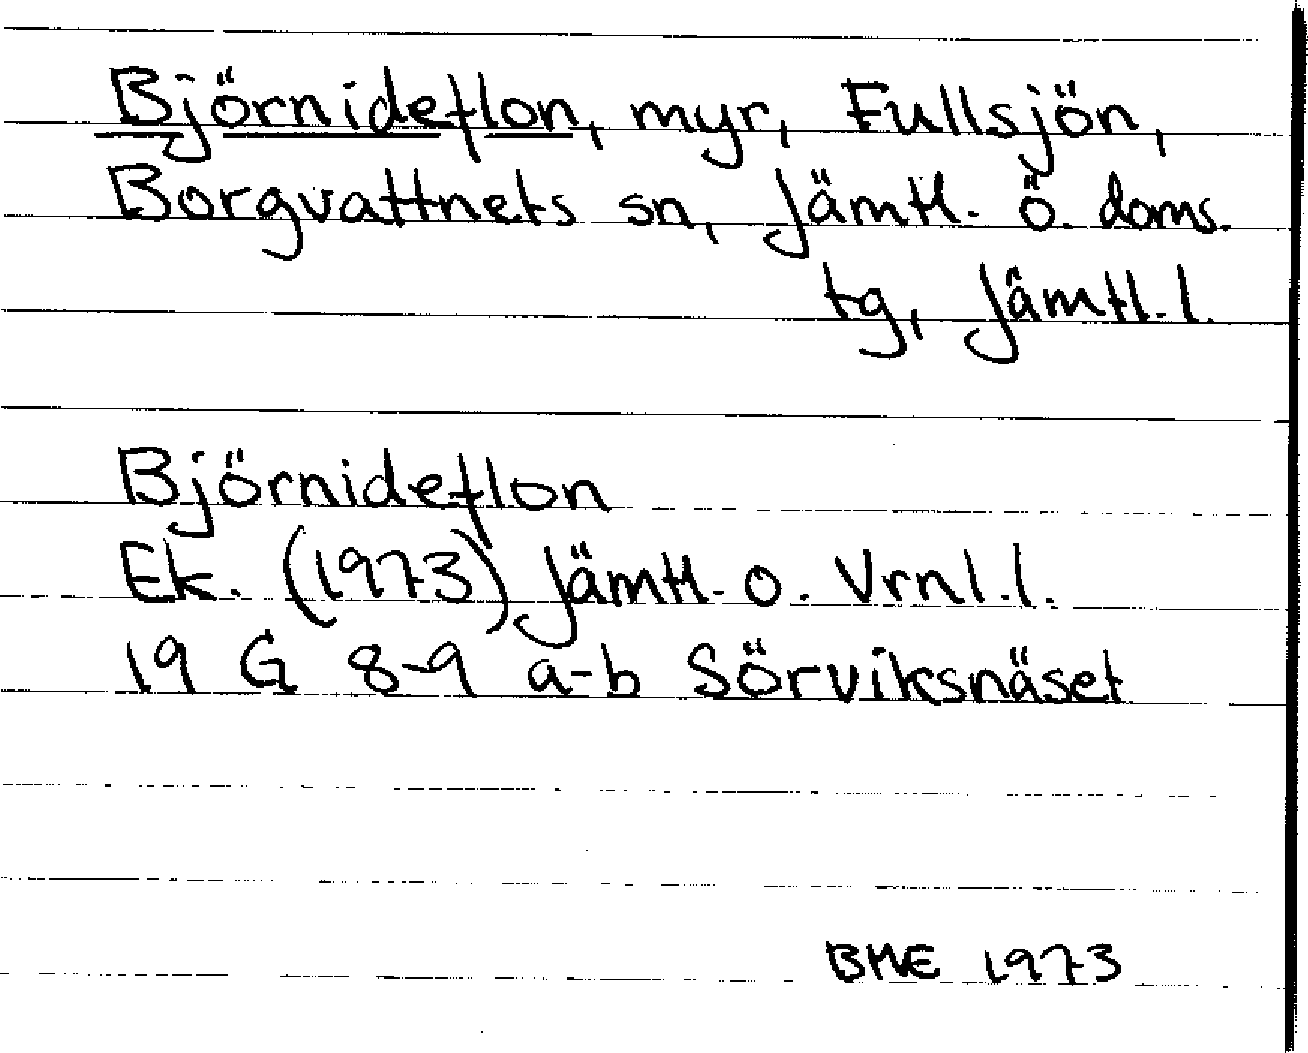 Björnideflon, myr, Fullsjön,
Borgvattnets sn, Jämtl. ö. doms.
tg, Jämtl. l.
Björnideflon
Ek. (1973) Jämtl. o. Vrnl. l.
19 G 8-9 a-b Sörviksnäset
BME 1973